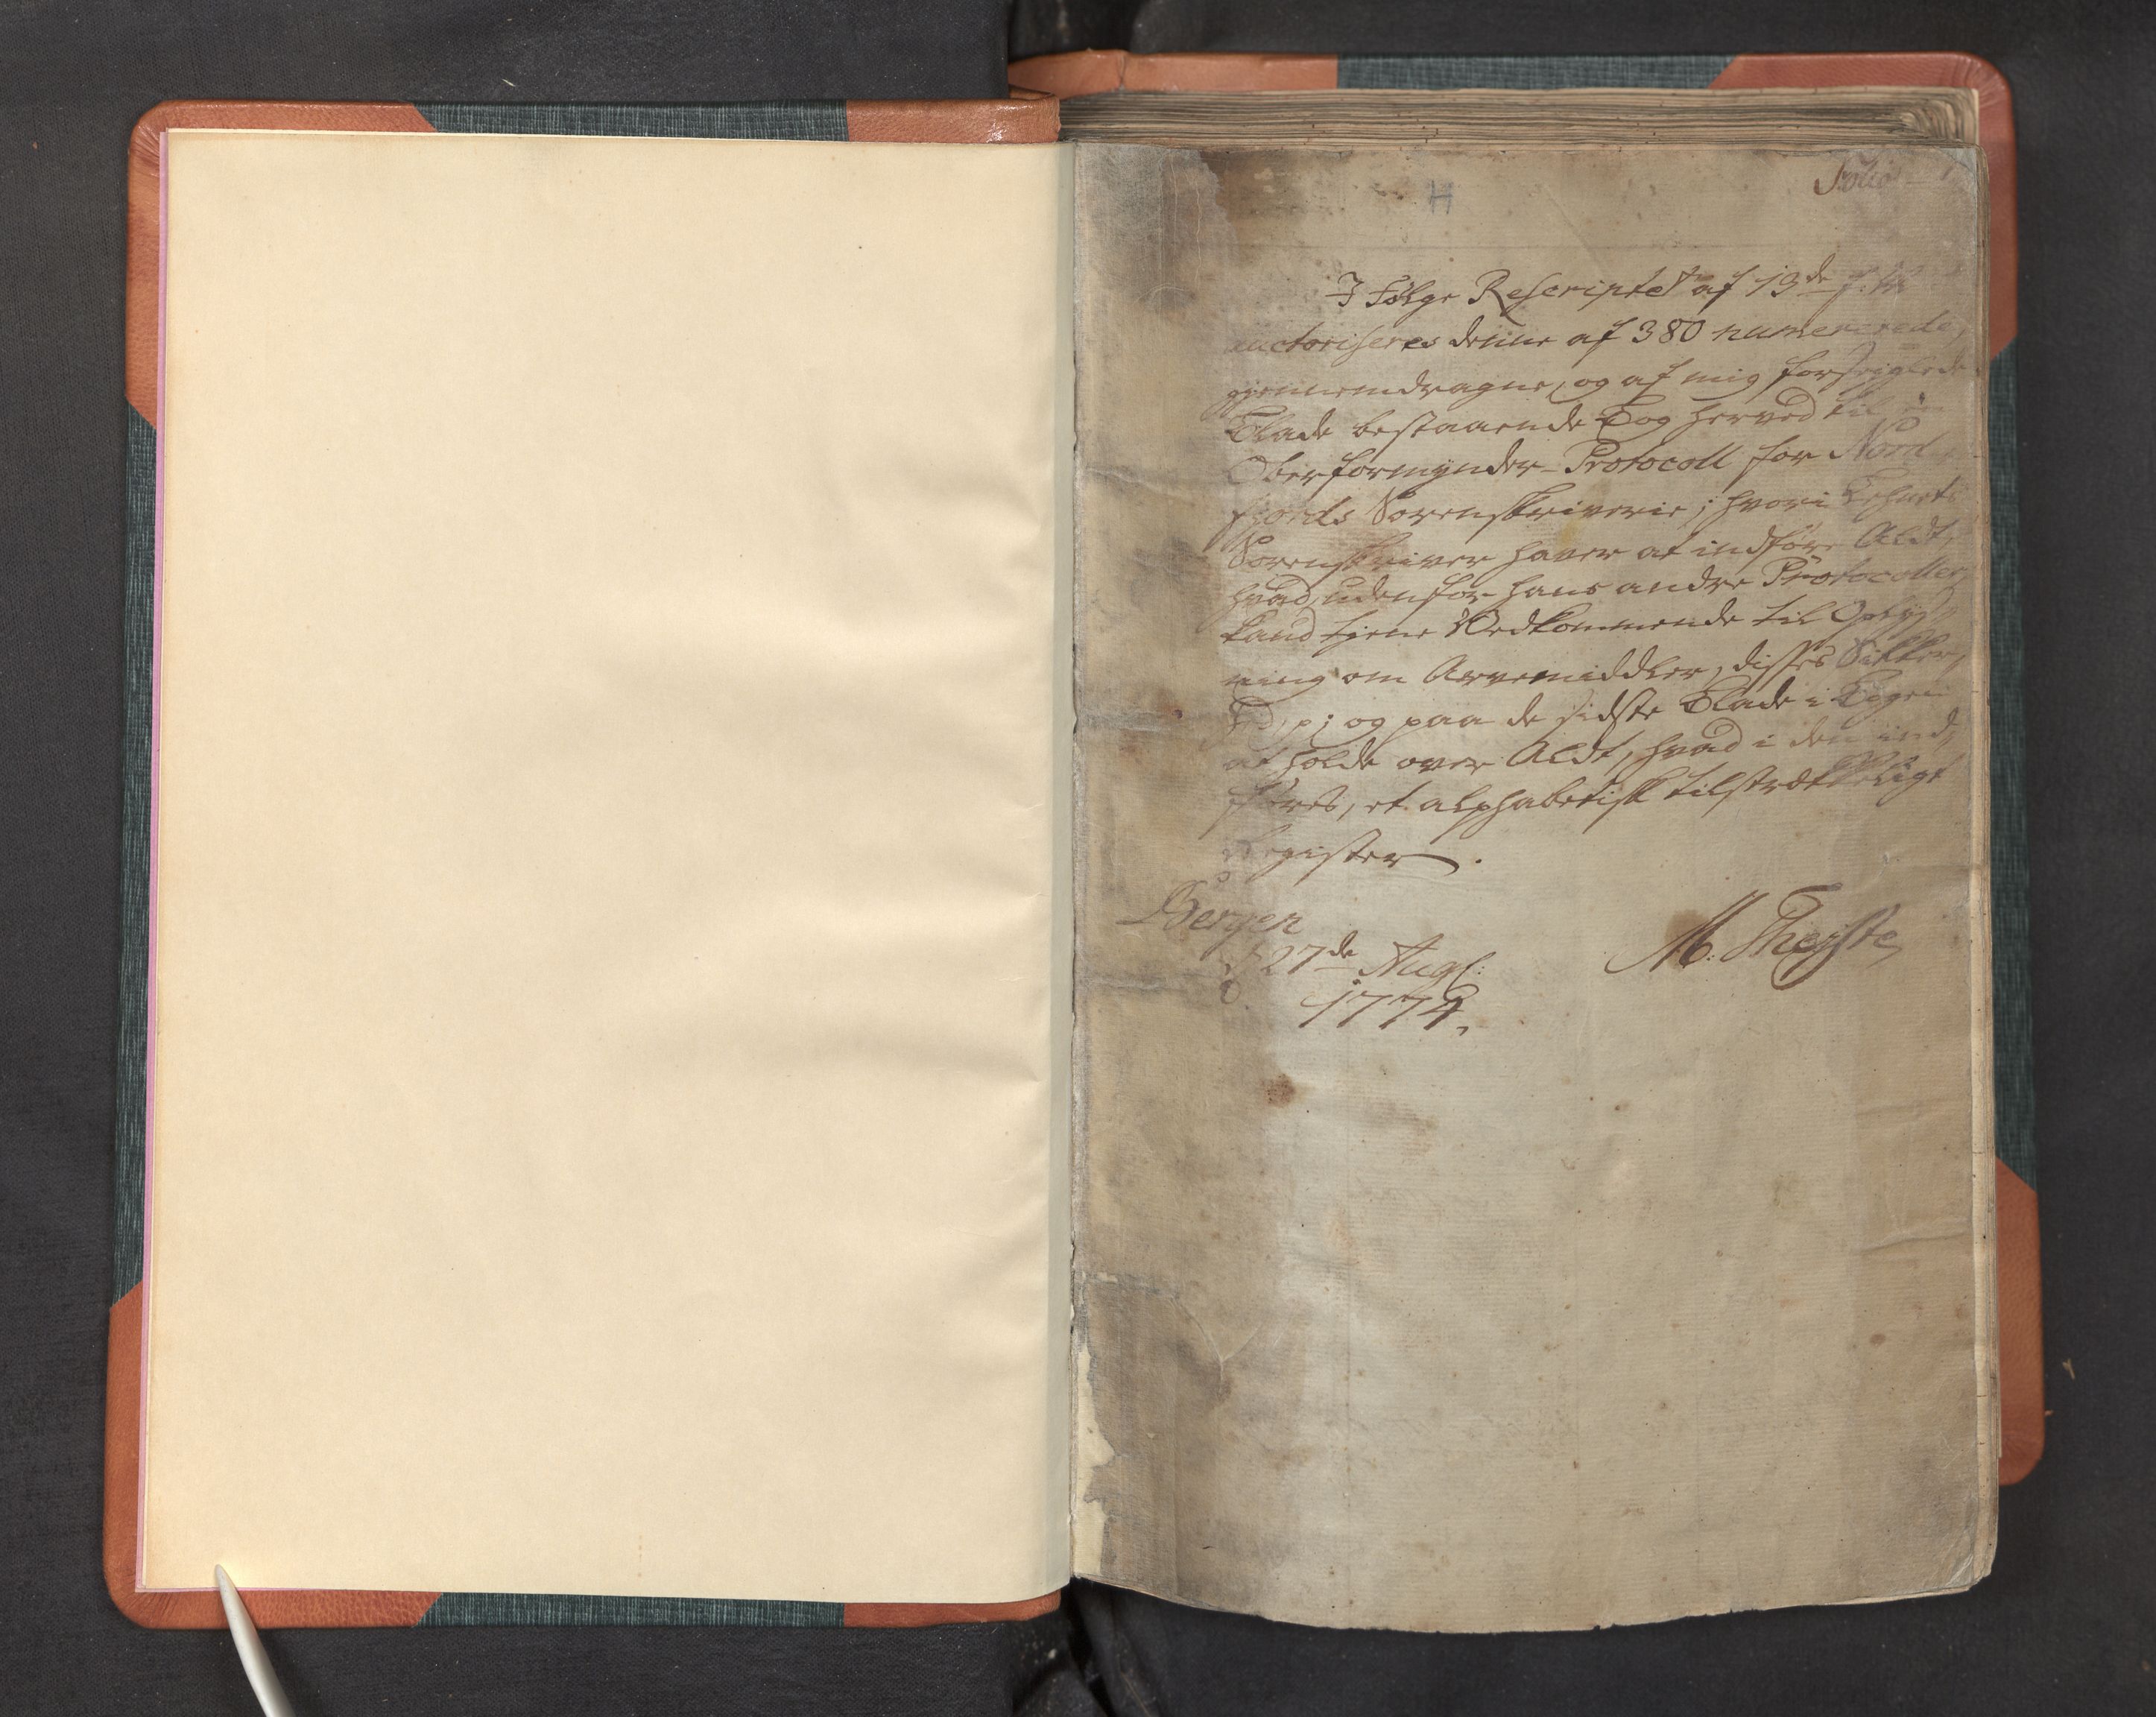 Folio 1
H
I følge Rescriptet af 13de f. M.
auctoriseres denne af 380 numererede,
gjennemdragne, og af mig forseiglede
Blade bestaaende Bog herved til en
Oberformynder-Protocoll for Nord-
fjords Sorenskriverie; hvori
Sorenskriver haver at indføre Aldt,
hvad, udenfor hans andre Protocoller,
kand tjene Vedkommende til Oplys-
ning om Arvemidler, disses Sikker-
hed, p; og paa de sidste Blade i Bogen
at holde over Aldt, hvad i den ind-
føres, et alphabetisk tilstrækkeligt
Register.
Bergen
d 27de Aug:
1774.
M. Theiste